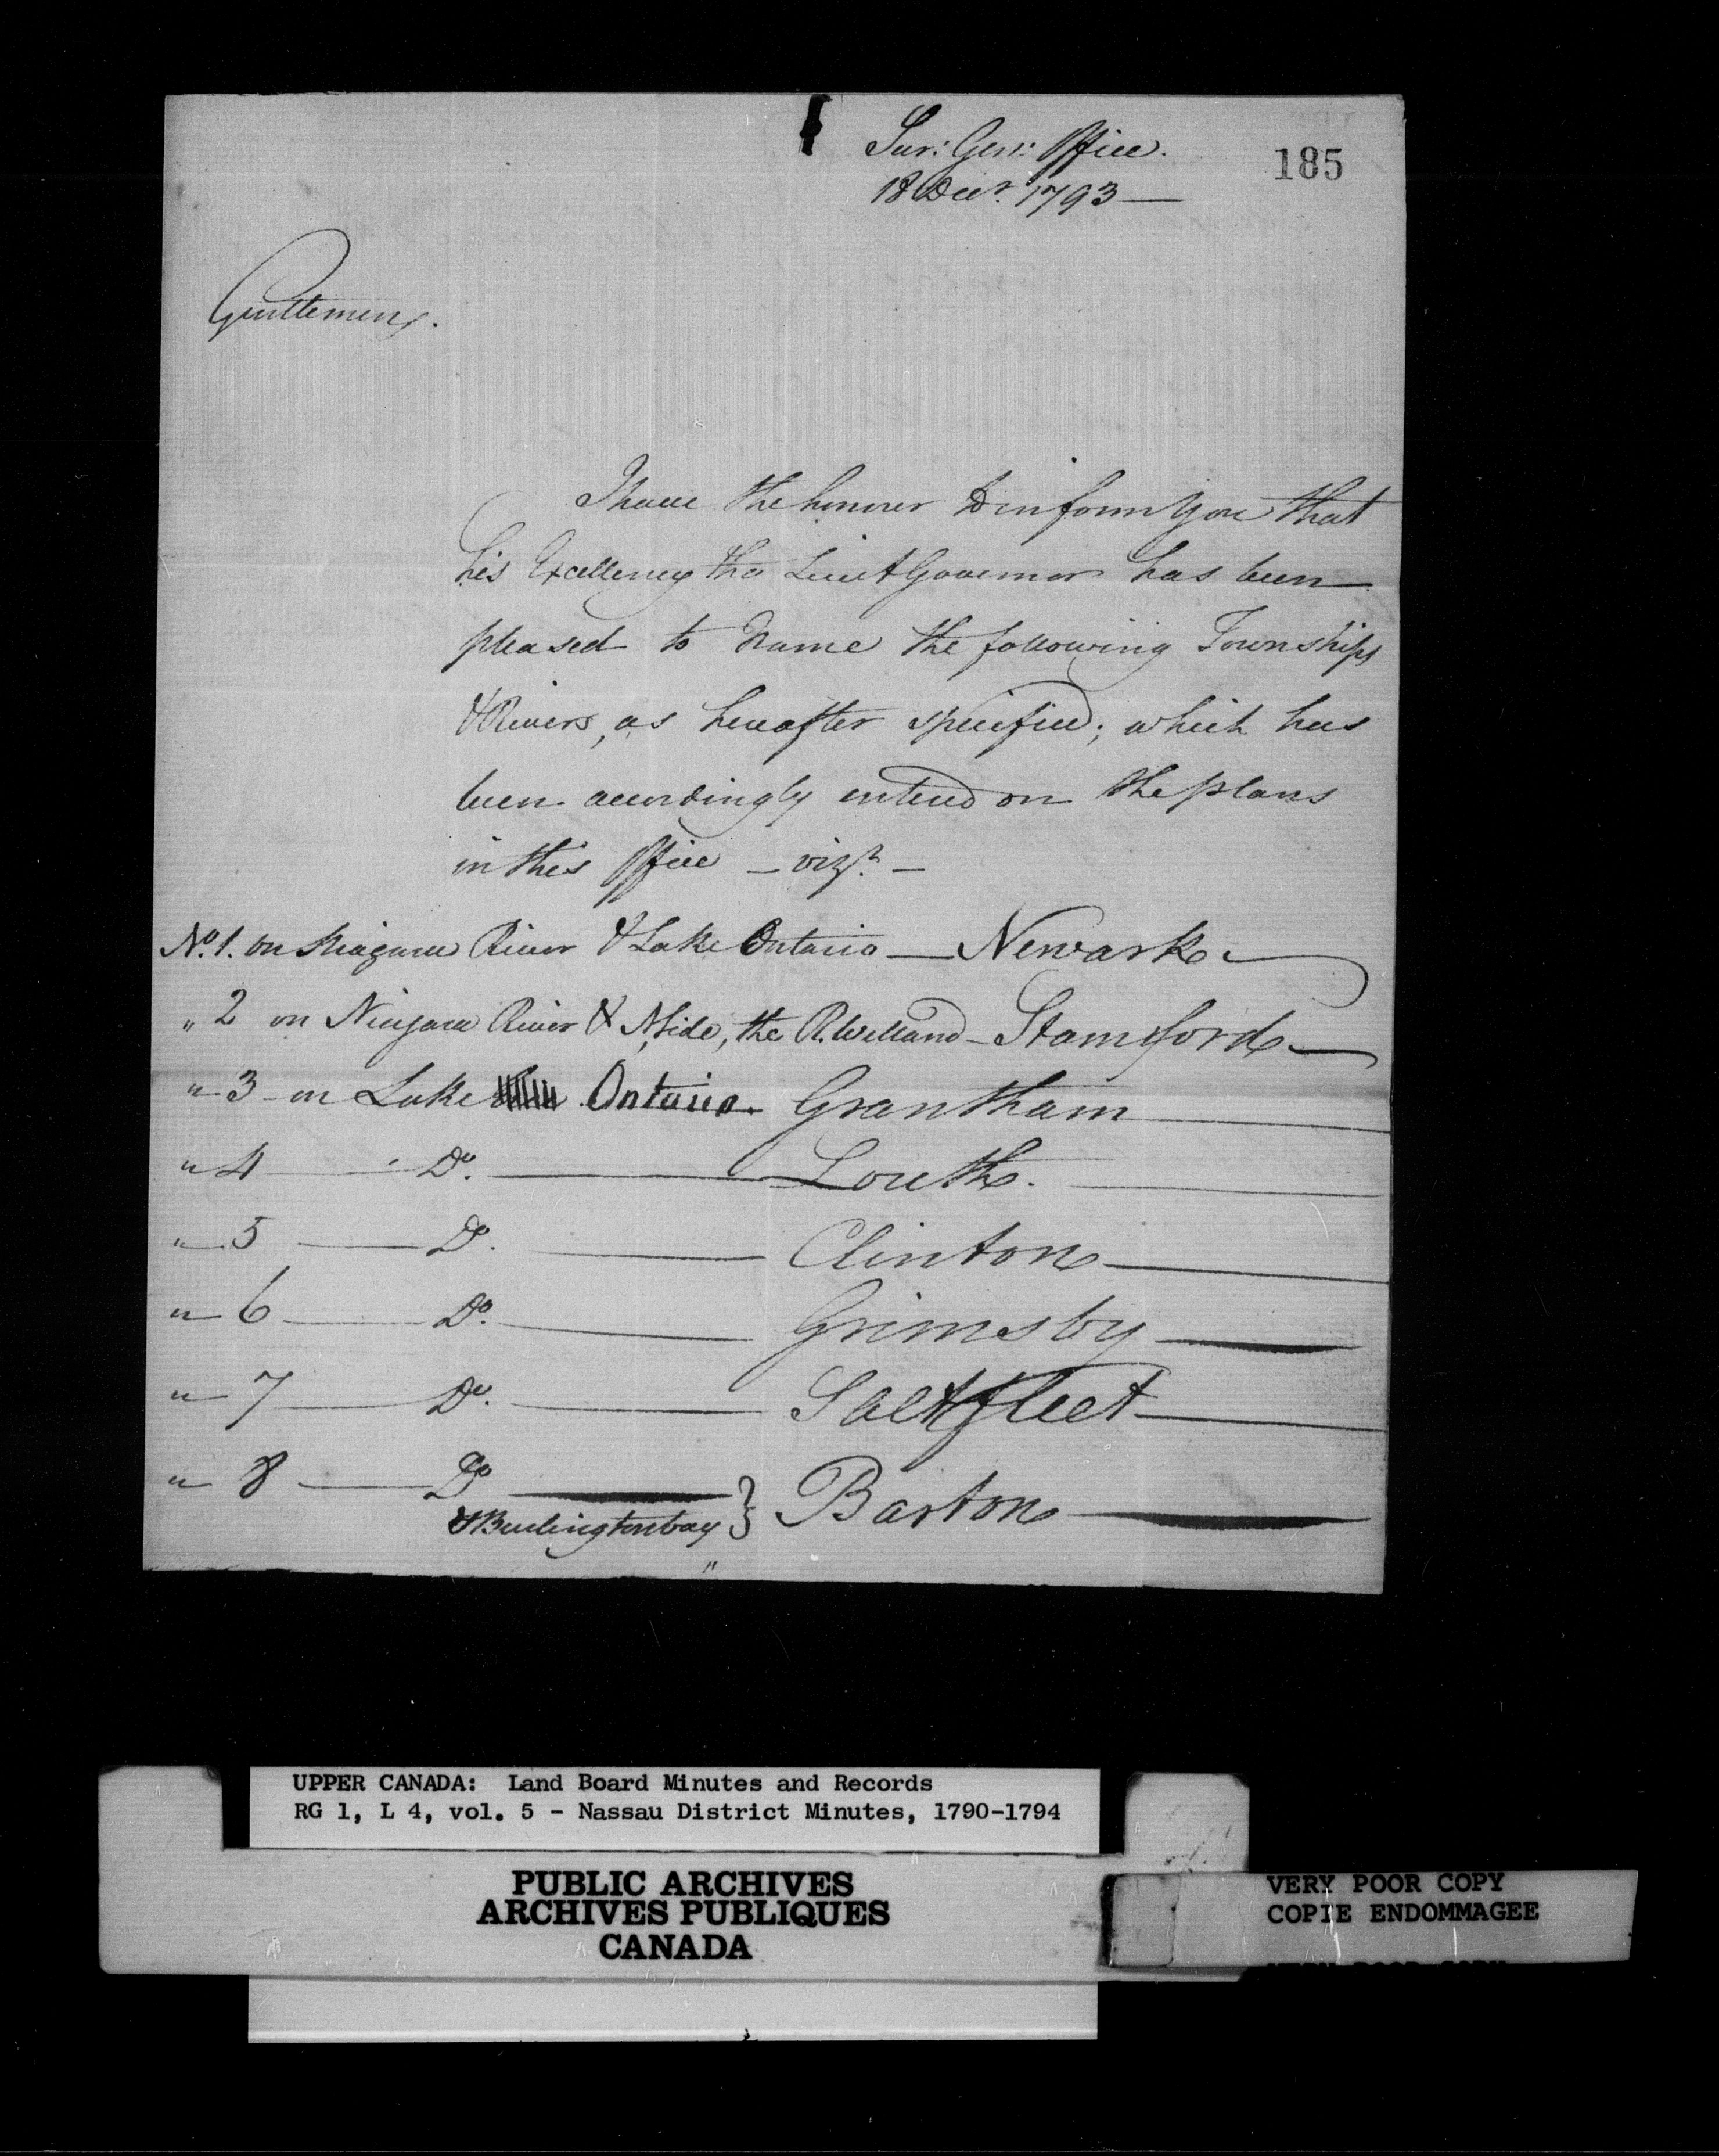 Sur: Gen: Office.
185
18 Decr. 1793 —
Gentlemen,
I have the honour to inform you that
his Excellency the Lieut Governor has been
pleased to name the following Townships
& Rivers, as hereafter specified; which has
been accordingly entered on the plans
in this Office — vizt. —
No. 1. on Niagara River & Lake Ontario — Newark —
" 2 on Niagara River & N. Side, the R. Welland — Stamford —
" 3 on Lake Ontario. Grantham
" 4 — Do. — Louth.
" 5 — Do. — Clinton —
" 6 — Do. — Grimsby —
" 7 — Do. — Saltfleet —
" 8 — Do — } Barton —
& Burlington bay
"
UPPER CANADA: Land Board Minutes and Records
RG 1, L 4, vol. 5 - Nassau District Minutes, 1790-1794
PUBLIC ARCHIVES
ARCHIVES PUBLIQUES
CANADA
VERY POOR COPY
COPIE ENDOMMAGEE
VERY POOR COPY